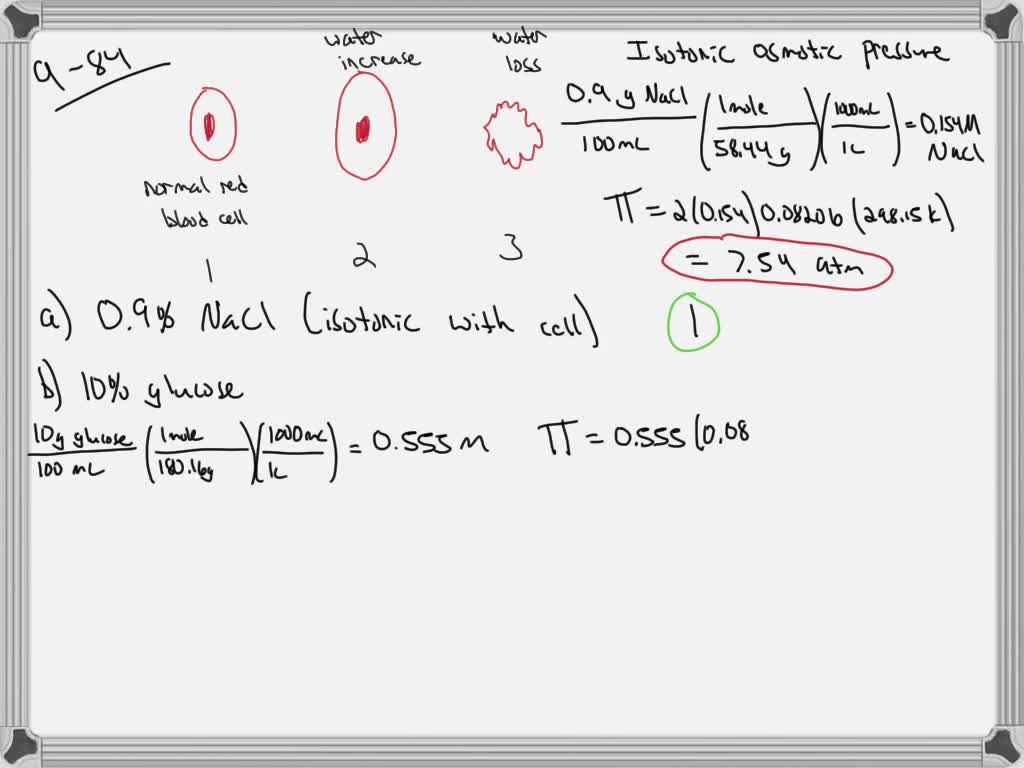 9-84
water increase
water loss
normal red blood cell
1 2 3
Isotonic osmotic pressure
0.9 g NaCl / 100 mL (1 mole / 58.44 g)(1000 mL / 1L) = 0.154M NaCl
π = 2(0.154)0.08206(298.15K)
= 7.54 atm
a) 0.9% NaCl (isotonic with cell) 1
b) 10% glucose
10g glucose / 100 mL (1 mole / 180.16g)(1000 mL / 1L) = 0.555 M π = 0.555(0.08